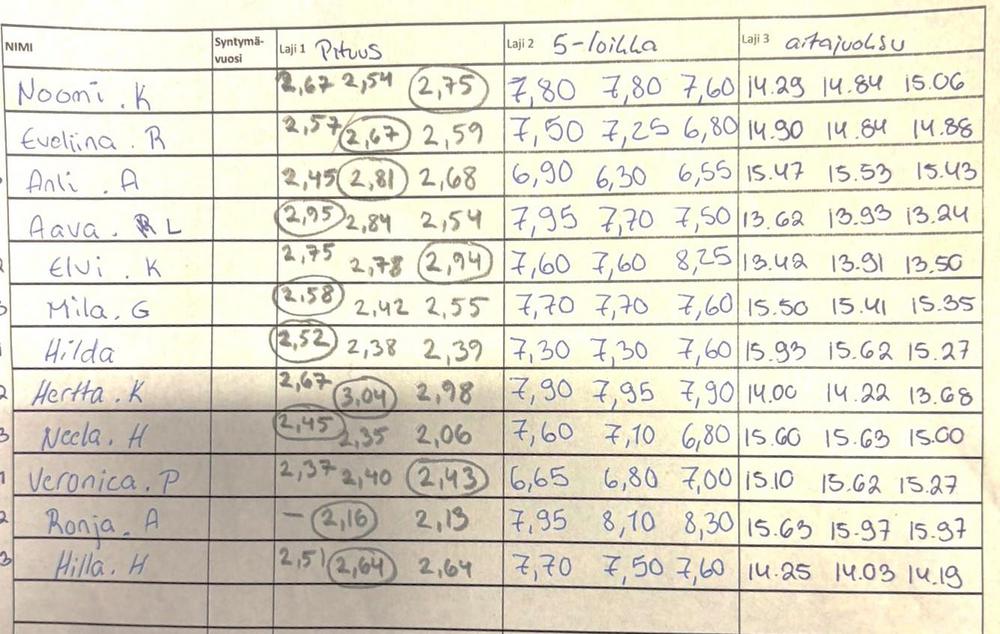 NIMI Syntymä-vuosi Laji 1 Pituus Laji 2 5-loikka Laji 3 aitajuoksu
Noomi . K 2,67 2,54 2,75 7,80 7,80 7,60 14.29 14.84 15.06
Eveliina . R 2,57 2,67 2,59 7,50 7,25 6,80 14.90 14.84 14.88
Anli . A 2,45 2,81 2,68 6,90 6,30 6,55 15.47 15.53 15.43
Aava . L 2,95 2,84 2,54 7,95 7,70 7,50 13.62 13.93 13.24
2 Elvi . K 2,75 2,78 2,94 7,60 7,60 8,25 13.42 13.91 13.50
3 Mila . G 2,58 2,42 2,55 7,70 7,70 7,60 15.50 15.41 15.35
1 Hilda 2,52 2,38 2,39 7,30 7,30 7,60 15.93 15.62 15.27
2 Hertta . K 2,67 3,04 2,98 7,90 7,95 7,90 14.00 14.22 13.68
3 Neela . H 2,45 2,35 2,06 7,60 7,10 6,80 15.60 15.63 15.00
1 Veronica . P 2,37 2,40 2,43 6,65 6,80 7,00 15.10 15.62 15.27
2 Ronja . A – 2,16 2,13 7,95 8,10 8,30 15.63 15.97 15.97
3 Hilla . H 2,51 2,64 2,64 7,70 7,50 7,60 14.25 14.03 14.19